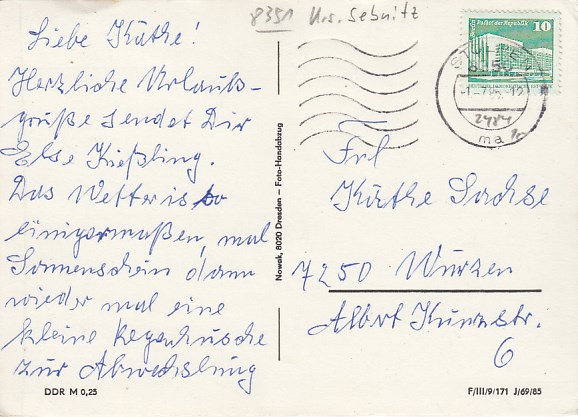 8351 Krs. Sebnitz
Liebe Käthe!
Herzliche Urlaubs-
grüße sendet Dir
Else Kießling.
Das Wetter is so
einigermaßen, mal
Sonnenschein dann
wieder mal eine
kleine Regenhusche
zur Abwechslung
DDR M 0,25
Nowak, 8020 Dresden – Foto-Handabzug
Palast der Republik
10
DDR
ma
Frl
Käthe Sachse
7250 Wurzen
Albert Kunzstr.
6
F/III/9/171 J/69/85